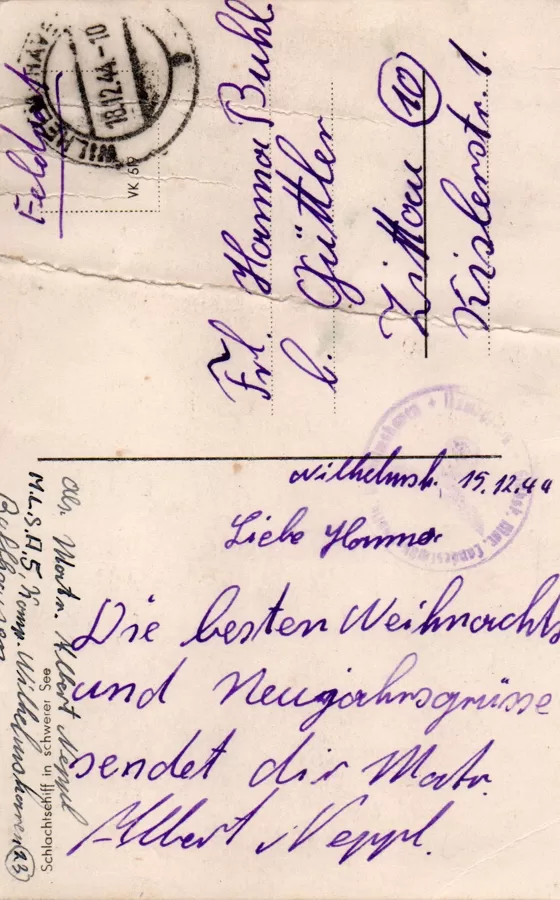 Wilhelmsh. 15.12.44
Liebe Hanna
Die besten Weihnachts
und Neujahrsgrüsse
sendet dir Matr.
Albert Neppl.
Abs. Matr. Albert Neppl
M.L.S.A, 5, Komp. Wilhelmshaven 23
Schlachtschiff in schwerer See
Feldpost
WILHELMSHAVEN
18.12.44-10
VK 519
Frl. Hanna Buhl
b. Güttler
Zittau 10
Kislerstr. 1.